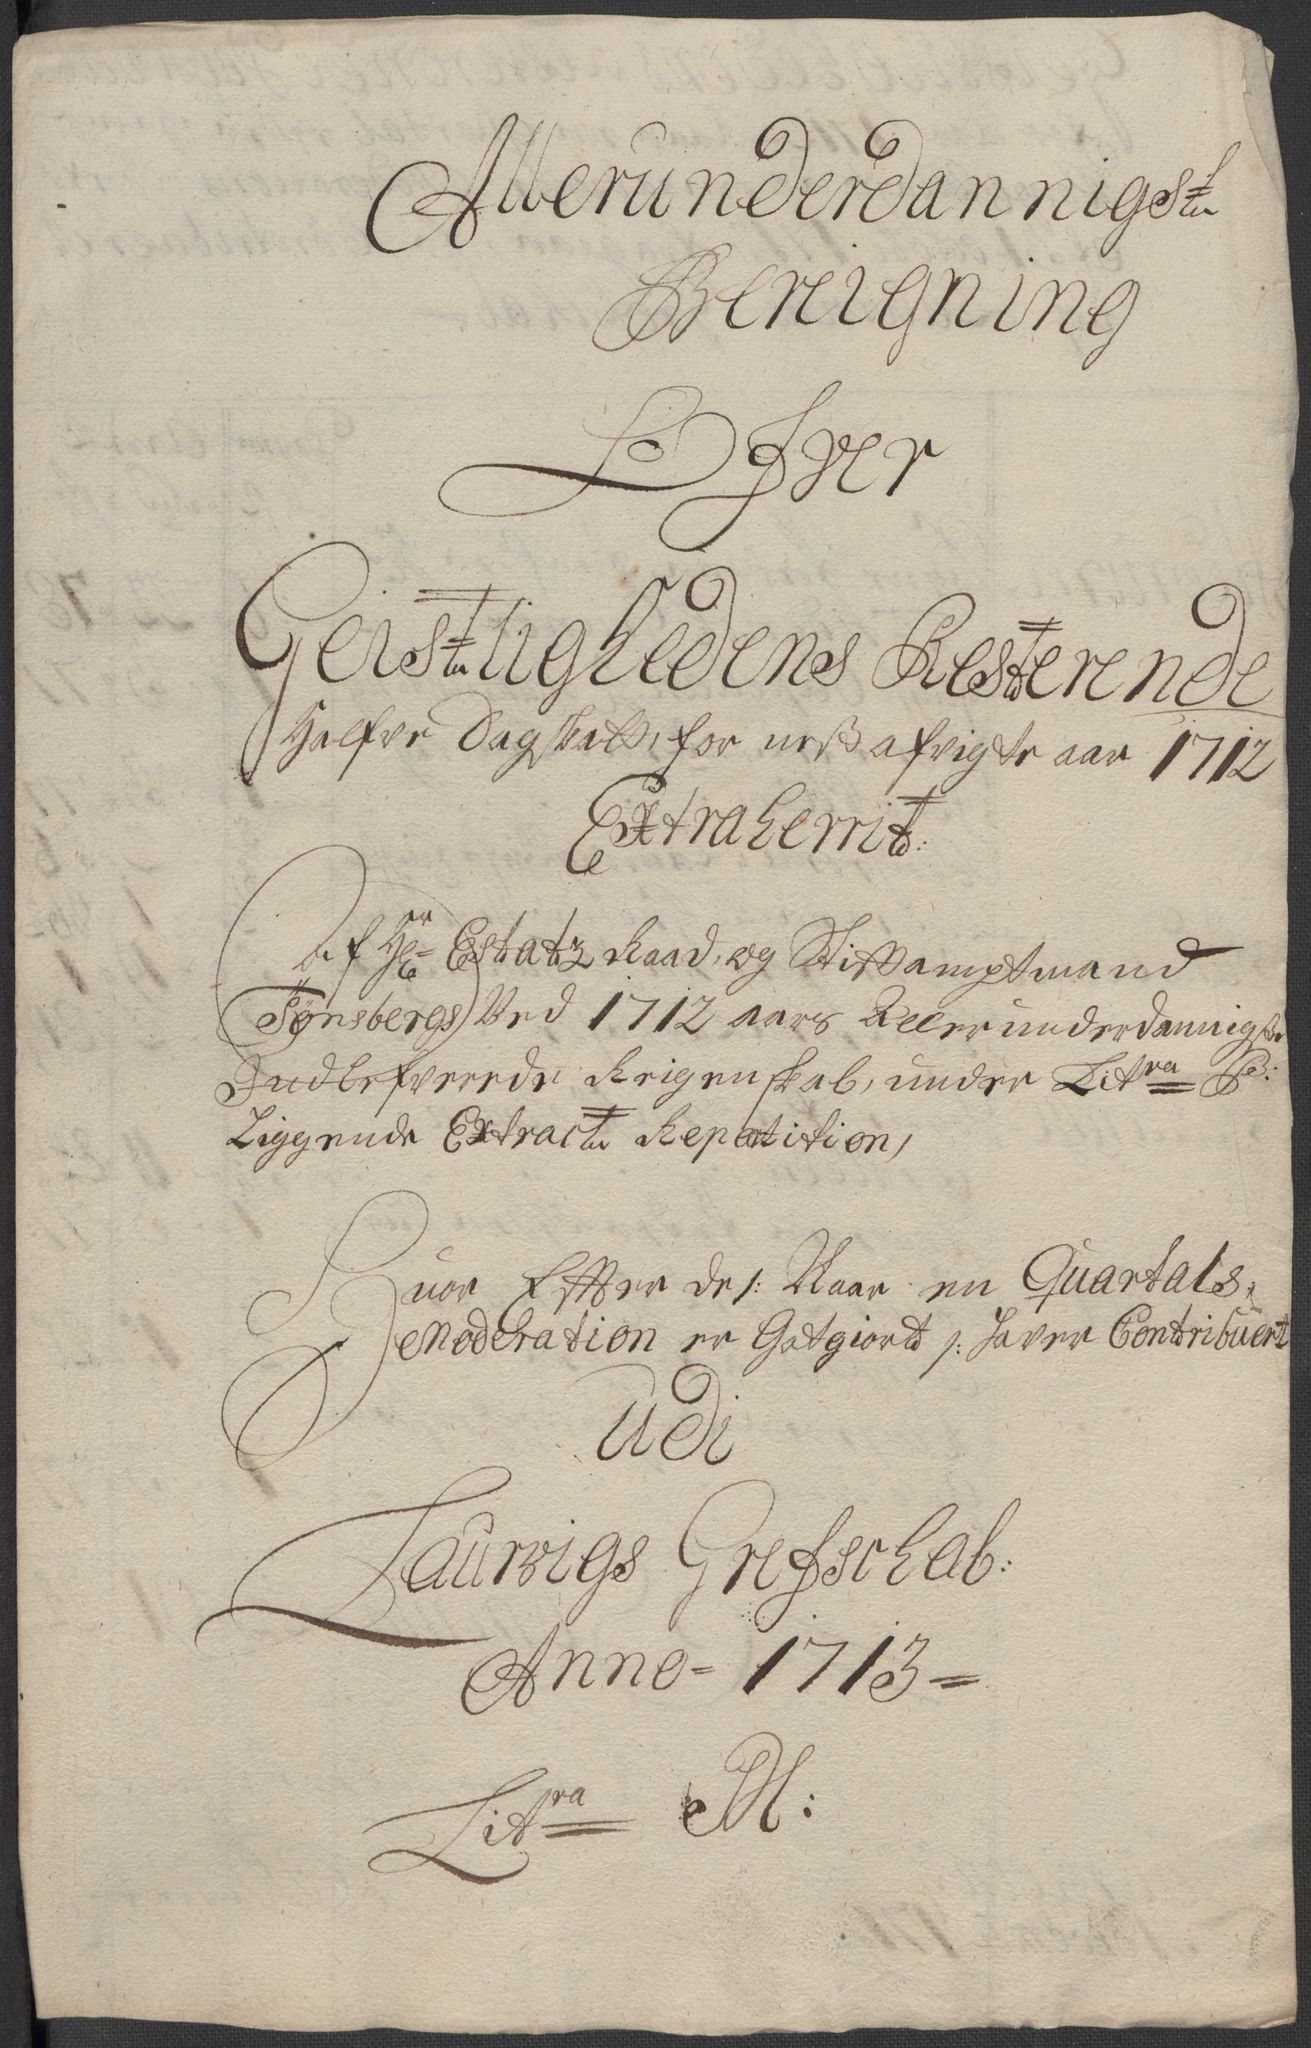 Allerunderdannigst
Bereigning
Ofver
Geistlighedens Resterende
Halfve Dagskatt, for nest afvigte aar 1712
Extraherrit:
Af Hr Estatz Raad, og Stiftamptmand
Tønsbergs Ved 1712 aars Allerunderdannigste
Indlefverede Reigenskab, under Litra
Liggende Extract Repatition,
Huor Effter de /: Naar en Quartals
Moderation er Gotgiort /: haver Contribuert
Udi
Laurvigs Grefschab:
Anno = 1713 =
Litra M: